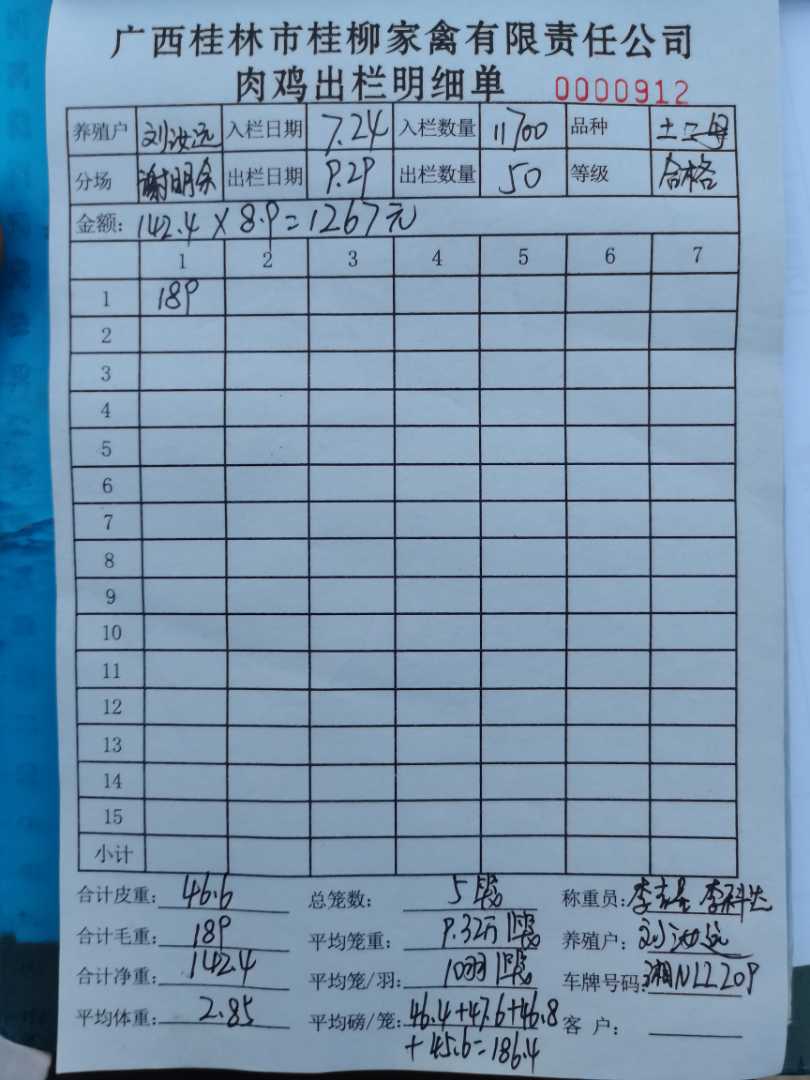 广西桂林市桂柳家禽有限责任公司
肉鸡出栏明细单 0000912
养殖户 刘汝远 入栏日期 7.24 入栏数量 11700 品种 土二号
分场 谢明余 出栏日期 9.29 出栏数量 50 等级 合格
金额: 142.4 × 8.9 = 1267元
1 2 3 4 5 6 7
1 189
2
3
4
5
6
7
8
9
10
11
12
13
14
15
小计
合计皮重: 46.6 总笼数: 5 称重员: 李 李科达
合计毛重: 189 平均笼重: 9.32 养殖户: 刘汝远
合计净重: 142.4 平均笼/羽: 10羽 车牌号码: 湘N12209
平均体重: 2.85 平均磅/笼: 46.4+47.6+46.8 客 户:
+45.6=186.4